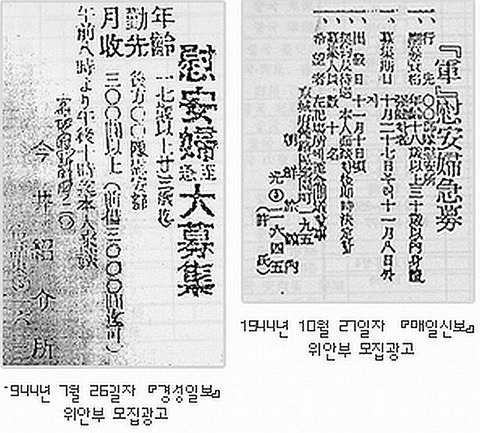 慰安婦至急大募集
年齡 一七歳以上廿三歳迄
勤先 後方〇〇隊慰安部
月收 三〇〇圓以上(前借三〇〇〇圓迄可)
午前八時より午後十時迄本人來談
今井紹介所
1944년 7월 26일자 『경성일보』
위안부 모집광고
『軍』慰安婦急募
一、行先 〇〇部隊慰安所
一、應募資格 年齡十八歳以上三十歳以內身體强健者
一、募集期日 十月二十七日부터十一月八日
一、出發日 十一月十日頃
一、契約及待遇 本人面談後卽時決定함
一、募集人員 數十名
一、希望者 左記場所
京城府鍾路區樂園町一九五
朝鮮旅館內
光③二六四五
(許氏)
1944년 10월 27일자 『매일신보』
위안부 모집광고